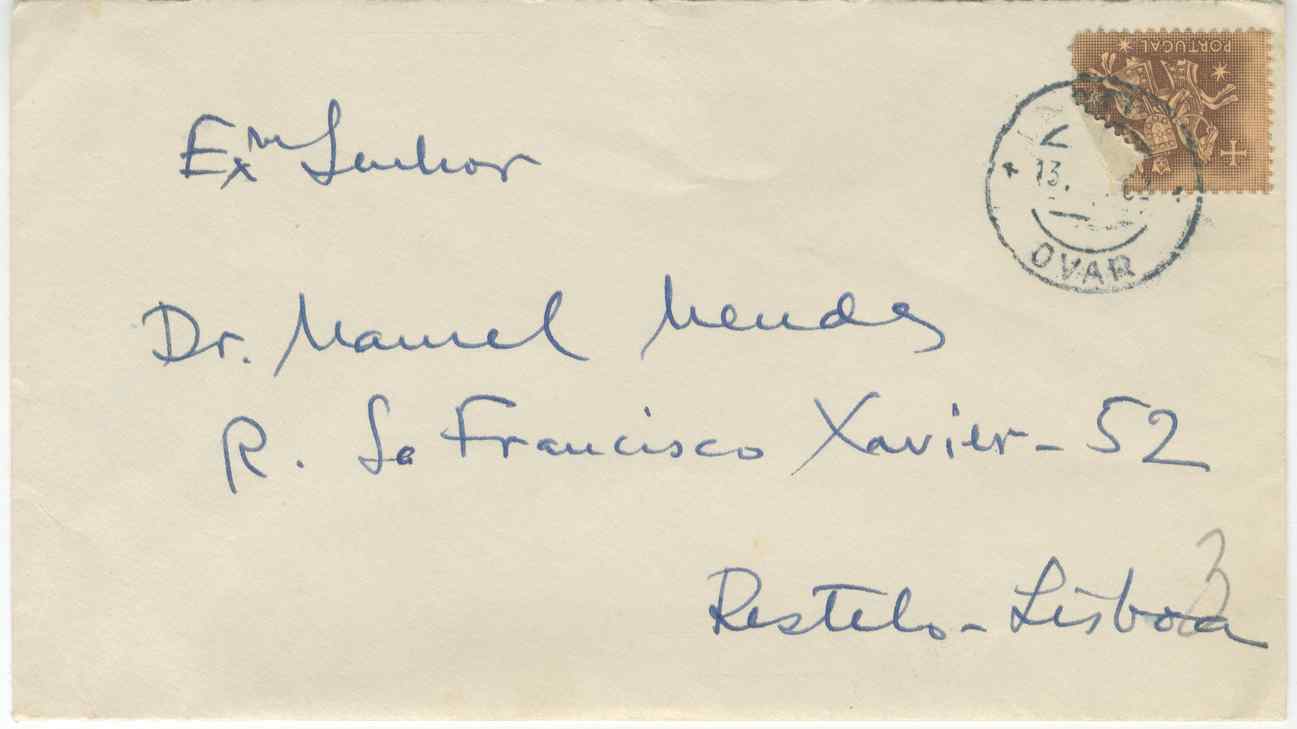 PORTUGAL
13.
OVAR
Exm Senhor
Dr. Manuel Mendes
R. S. Francisco Xavier - 52
Restelo - Lisboa
3